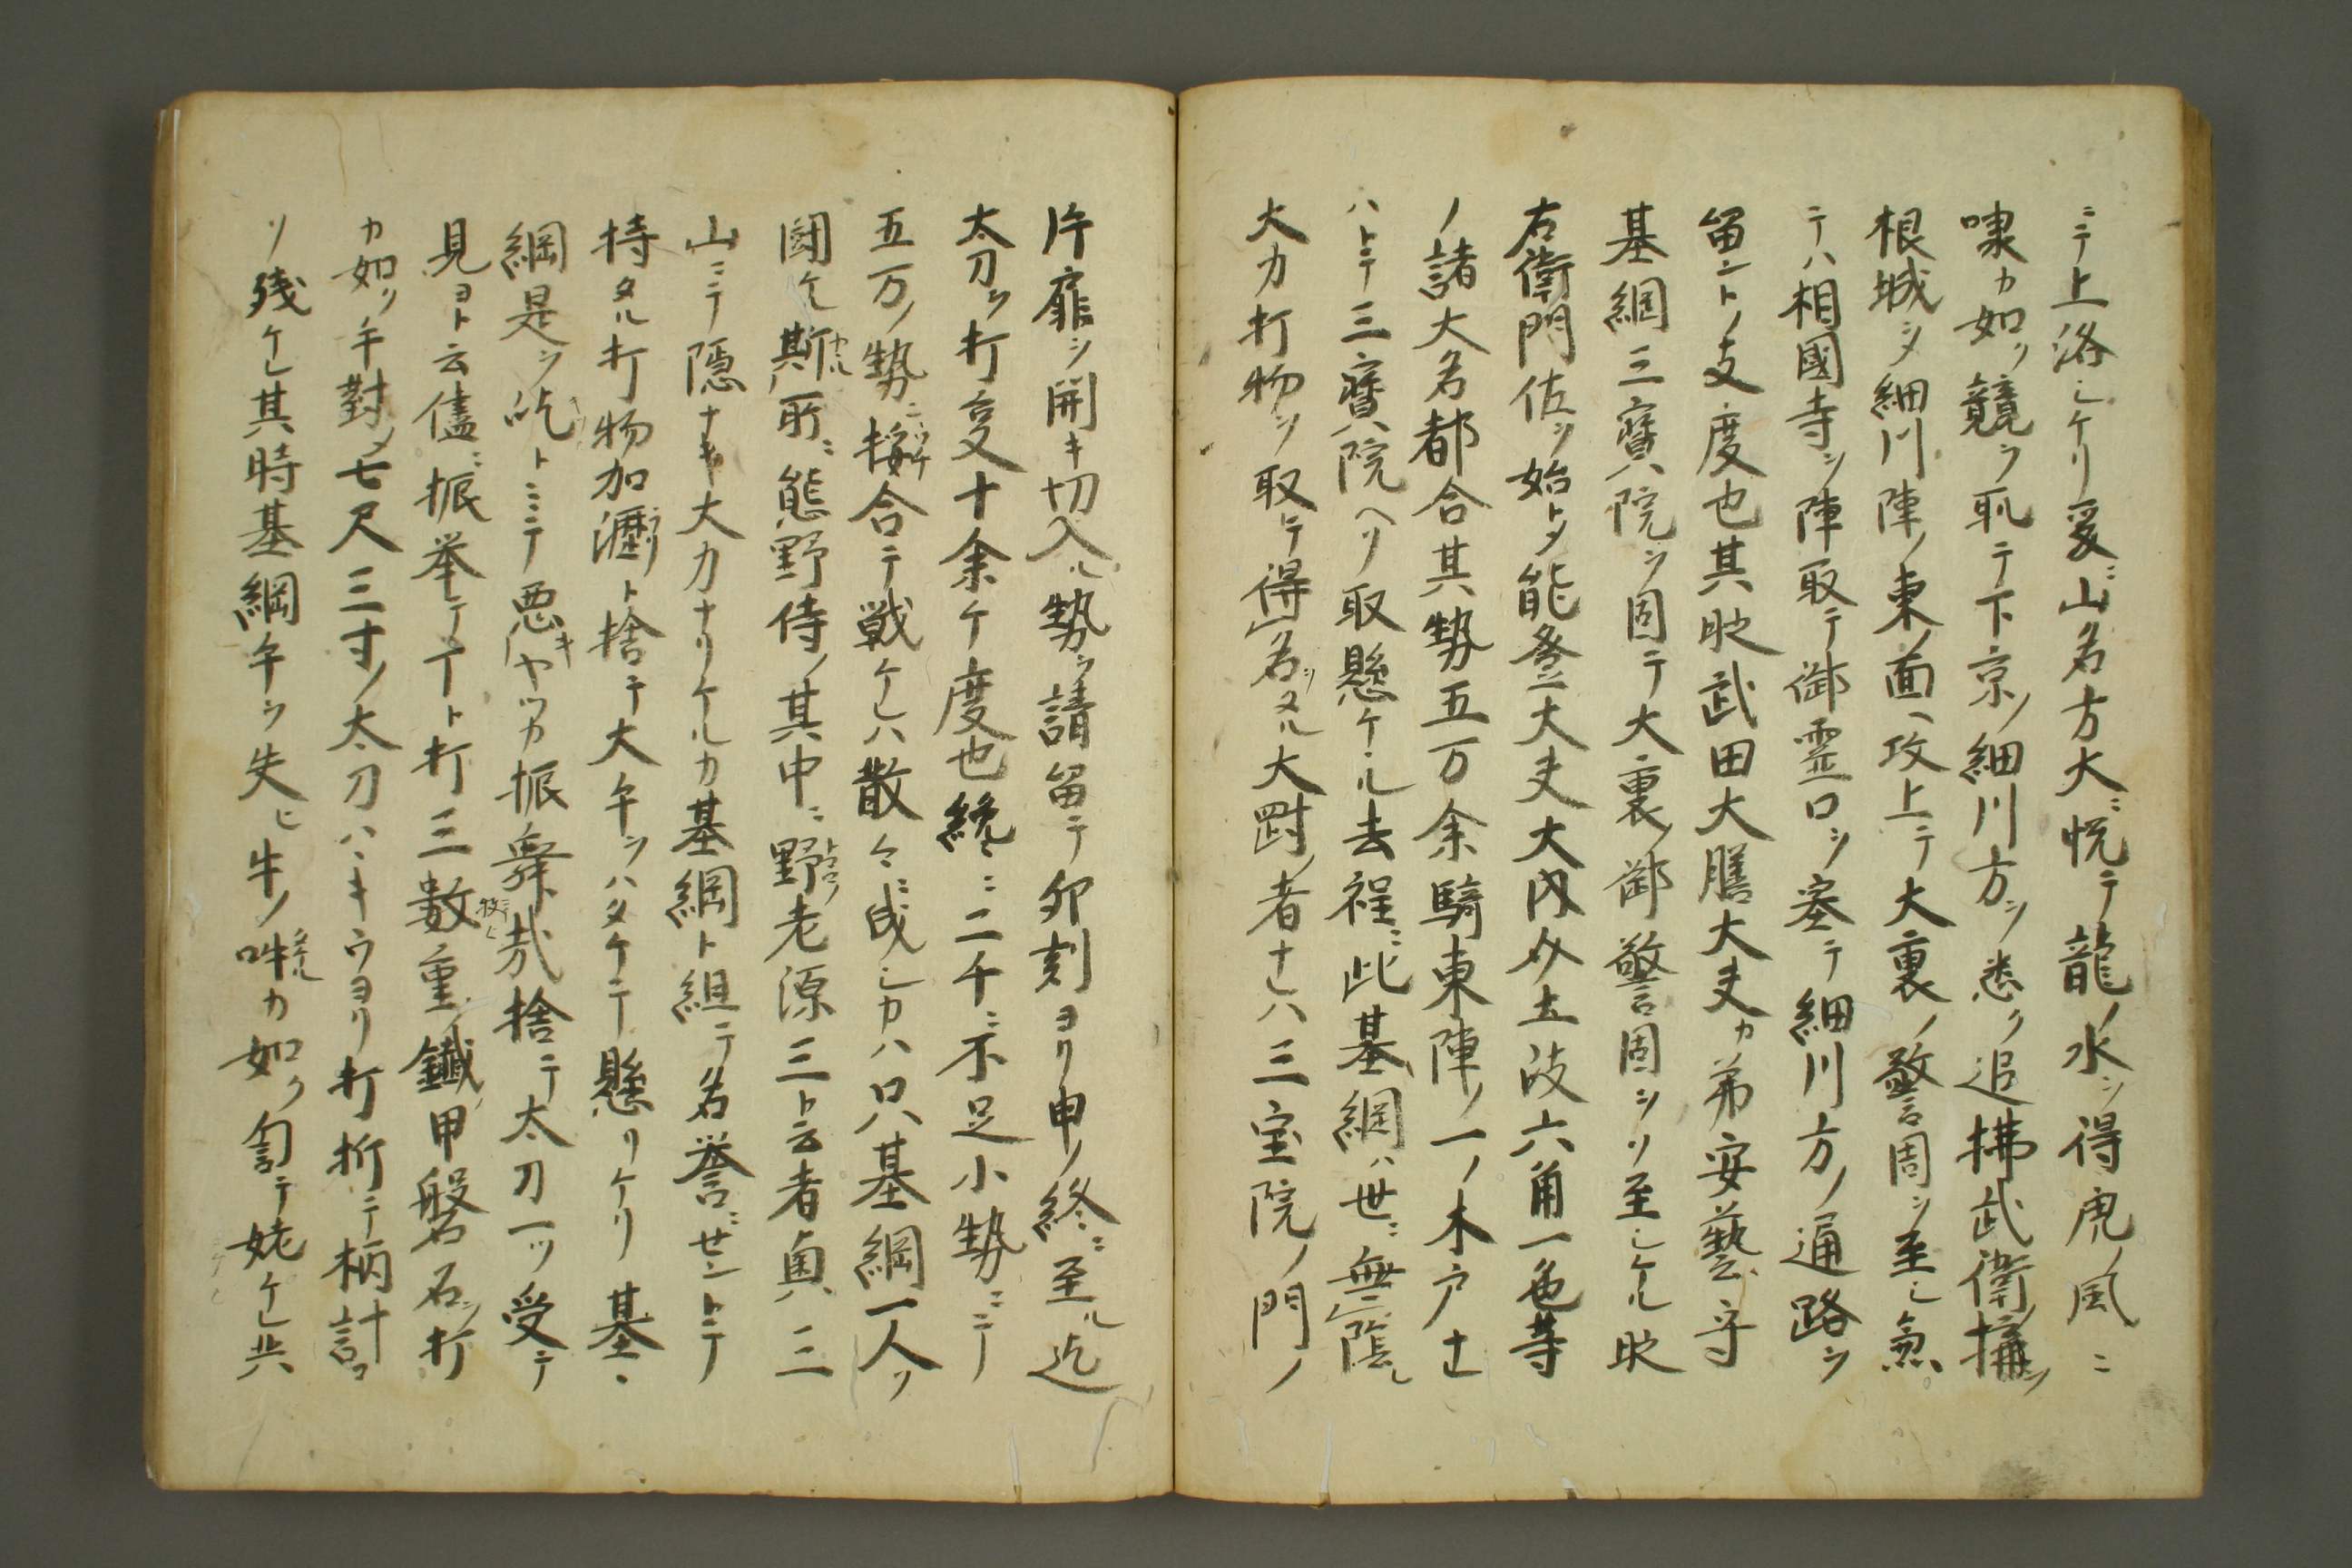 ニテ上洛シケリ爰ニ山名方大ニ悦テ龍ノ水ヲ得虎ノ風ニ
嘯カ如ク競ヲ取テ下京ノ細川方ヲ悉ク追拂武衛ノ搆ヲ
根城シタ細川陣ノ東ノ面ヘ攻上テ大裏ノ警固ヲ至シ急
テハ相國寺ヲ陣取テ御霊口ヲ塞テ細川方ノ通路ヲ
留ントノ支度也其比武田大膳大夫カ弟安藝守
基綱三寳院ヲ固テ大裏ノ御警固ヲソ至シケル比
右衛門佐ヲ始トメ能登大夫大内介土岐六角一色等
ノ諸大名都合其勢五万余騎東陣ノ一ノ木戸ナレ
ハトテ三寳院ヘソ取懸ケル去程ニ此基綱ハ世ニ無隠レ
大力打物ヲ取テ得名ヲタル大剛ノ者ナレハ三宝院ノ門ノ
片扉ヲ開キ切入ル勢ヲ請留テ卯刻ヨリ申ノ終ニ至ル迄
太刀ヲ打変十余ケ度也纔ニ二千ニ不足小勢ニテ
五万ノ勢ニ接合テ戦ケレハ散々ニ成シカハ只基綱一人ソ
闘ケル斯ル所ニ熊野侍ノ其中ニ野老源三ト云者真三
山ニテ隠ナキ大力ナリケルカ基綱ト組テ名誉ニセントテ
持タル打物加瀝ト捨テ大手ヲハタケテ懸リケリ基
綱是ヲ吃トミテ悪キヤツカ振舞哉捨テ太刀一ツ受テ
見ヨト云儘ニ振挙テ丁ト打三数重ノ鐵甲磐石ヲ打
カ如ク手對メ七尺三寸ノ太刀ハヽキヲヨリ打折テ柄計ソ
ソ残ケル其時基綱牛ヲ失ヒ牛ノ吽カ如ク訇テ 姥ケレ共